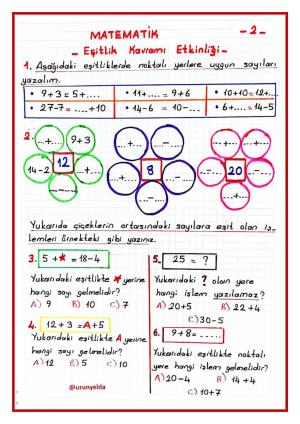 MATEMATİK
- 2 -
- Eşitlik Kavramı Etkinliği -
1. Aşağıdaki eşitliklerde noktalı yerlere uygun sayıları
yazalım.
• 9+3 = 5+....
• 11+.... = 9+6
• 10+10 = 12+....
• 27-7 = .....+10
• 14-6 = 10-...
• 6+.... = 14-5
2.
...+...
9+3
14-2
12
...+...
...-...
8
20
Yukarıda çiçeklerin ortasındaki sayılara eşit olan iş-
lemleri örnekteki gibi yazınız.
3. 5 +★ = 18-4
Yukarıdaki eşitlikte ★ yerine
hangi sayı gelmelidir?
A) 9 B) 10 C) 7
4. 12+3 = A+5
Yukarıdaki eşitlikte A yerine
hangi sayı gelmelidir?
A) 12 B) 5 C) 10
@uzunyelda
5. 25 = ?
Yukarıdaki ? olan yere
hangi işlem yazılamaz?
A) 20+5 B) 22+4
C) 30-5
6. 9+8= .......
Yukarıdaki eşitlikte noktalı
yere hangi işlem gelmelidir?
A) 20-4 B) 14+4
C) 10+7